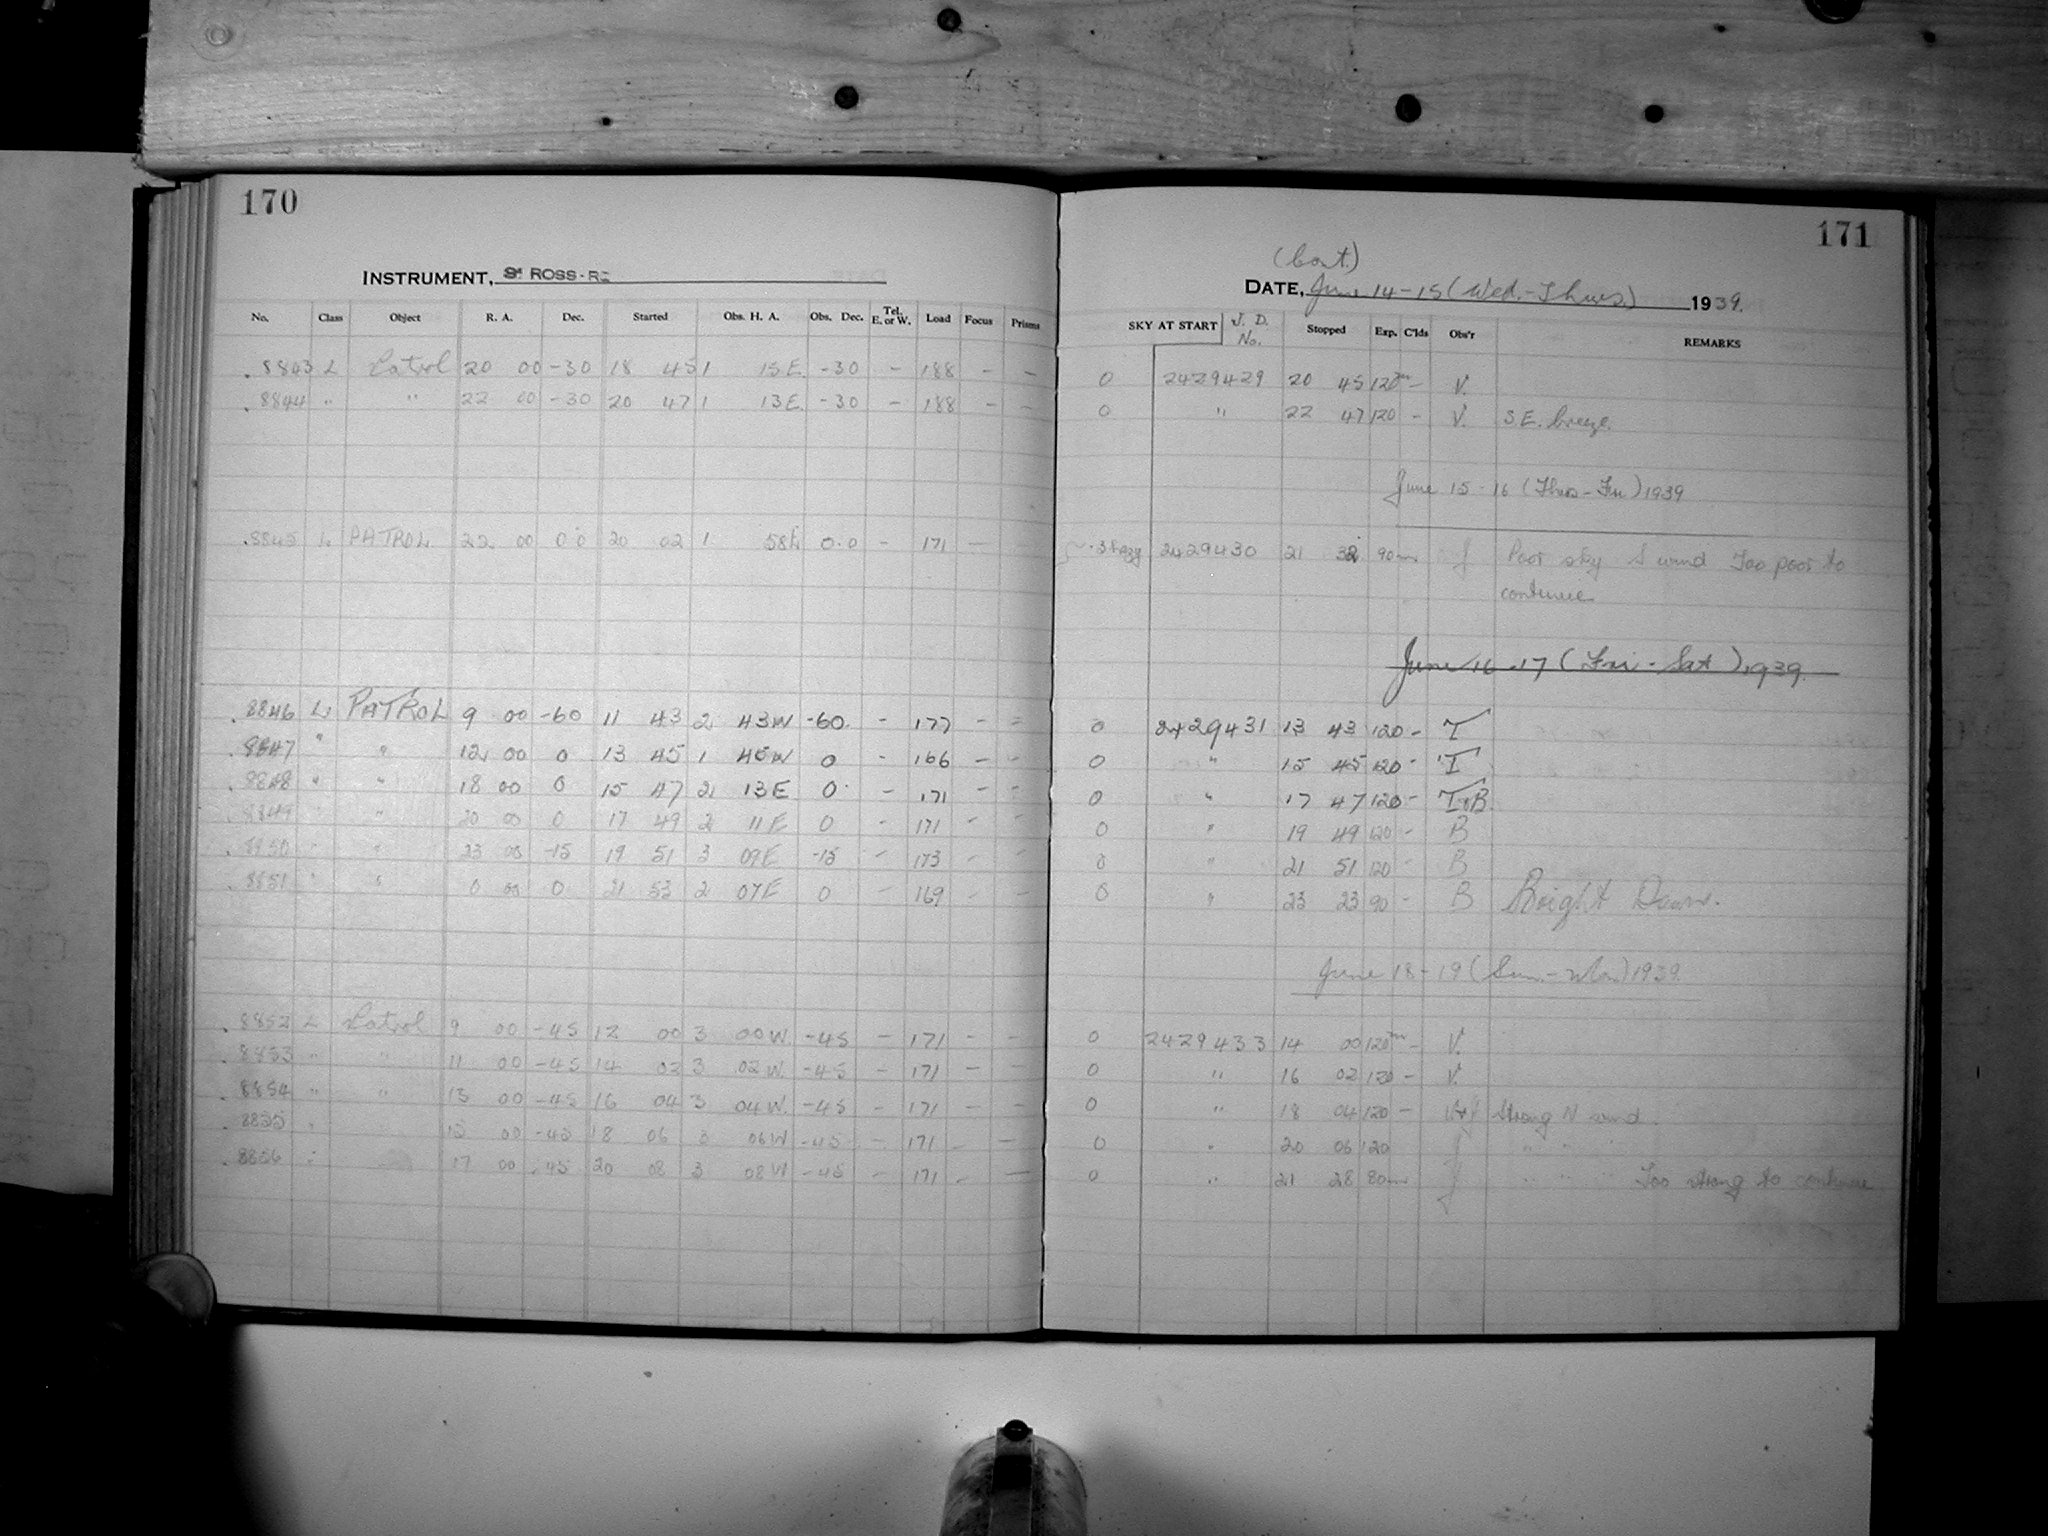 170
INSTRUMENT, ROSS-
No. Class Object R. A. Dec. Started Obs. H. A. Obs. Dec. Tel. E. or W. Load Focus Prisms
8843 L Patrol 20 00 -30 18 45 1 15E -30 - 188 - -
8844 " " 22 00 -30 20 47 1 13E -30 - 188 - -
8845 L PATROL 22 00 0 0 20 02 1 58E 0.0 - 171 -
8846 L PATROL 9 00 -60 11 43 2 43W -60. - 177 - -
8847 " " 12 00 0 13 45 1 45W 0 - 166 - -
8848 " " 18 00 0 15 47 2 13E 0 - 171 - -
8849 " " 20 00 0 17 49 2 11E 0 - 171 - -
8850 " " 23 00 -15 19 51 3 09E -15 - 173 - -
8851 " " 0 00 0 21 53 2 07E 0 - 169 - -
8852 L Patrol 9 00 -45 12 00 3 00W -45 - 171 - -
8853 " " 11 00 -45 14 02 3 02W. -45 - 171 - -
8854 " " 13 00 -45 16 04 3 04W. -45 - 171 - -
8855 " 15 00 -45 18 06 3 06W -45 - 171 - -
8856 " 17 00 -45 20 08 3 08W -45 - 171 - -
171
(Cont.)
DATE, June 14-15 (Wed.-Thurs.) 1939.
SKY AT START J. D. No. Stopped Exp. C'lds Obs'r REMARKS
0 2429429 20 45 120m - V.
0 " 22 47 120 - V. S.E. breeze.
June 15-16 (Thurs-Fri) 1939
Hazy 2429430 21 32 90m J Poor sky S wind Too poor to
continue
June 16-17 (Fri-Sat), 1939.
0 2429431 13 43 120 - T
0 " 15 45 120 - T
0 " 17 47 120 - T+B
0 " 19 49 120 - B
0 " 21 51 120 - B
0 " 23 23 90 - B Bright Dawn.
June 18-19 (Sun.-Mon.) 1939.
0 2429433 14 00 120m - V.
0 " 16 02 120 - V.
0 " 18 04 120 - V+J Strong N wind.
0 " 20 06 120 J " " "
0 " 21 28 80m J " " " Too strong to continue